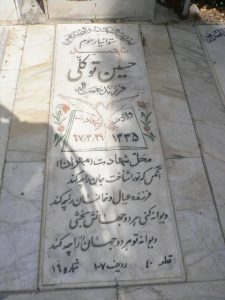 حسین توکلی
فرزند
ولادت
شهادت
۱۳۳۵
۶۷/۳/۲۹
محل شهادت (مهران)
آنکس که تو را شناخت جان را چه کند
فرزند و عیال و خانمان را چه کند
دیوانه کنی هر دو جهانش بخشی
دیوانه تو هر دو جهان را چه کند
قطعه ۴۰ ردیف ۱۰۷ شماره ۱۶